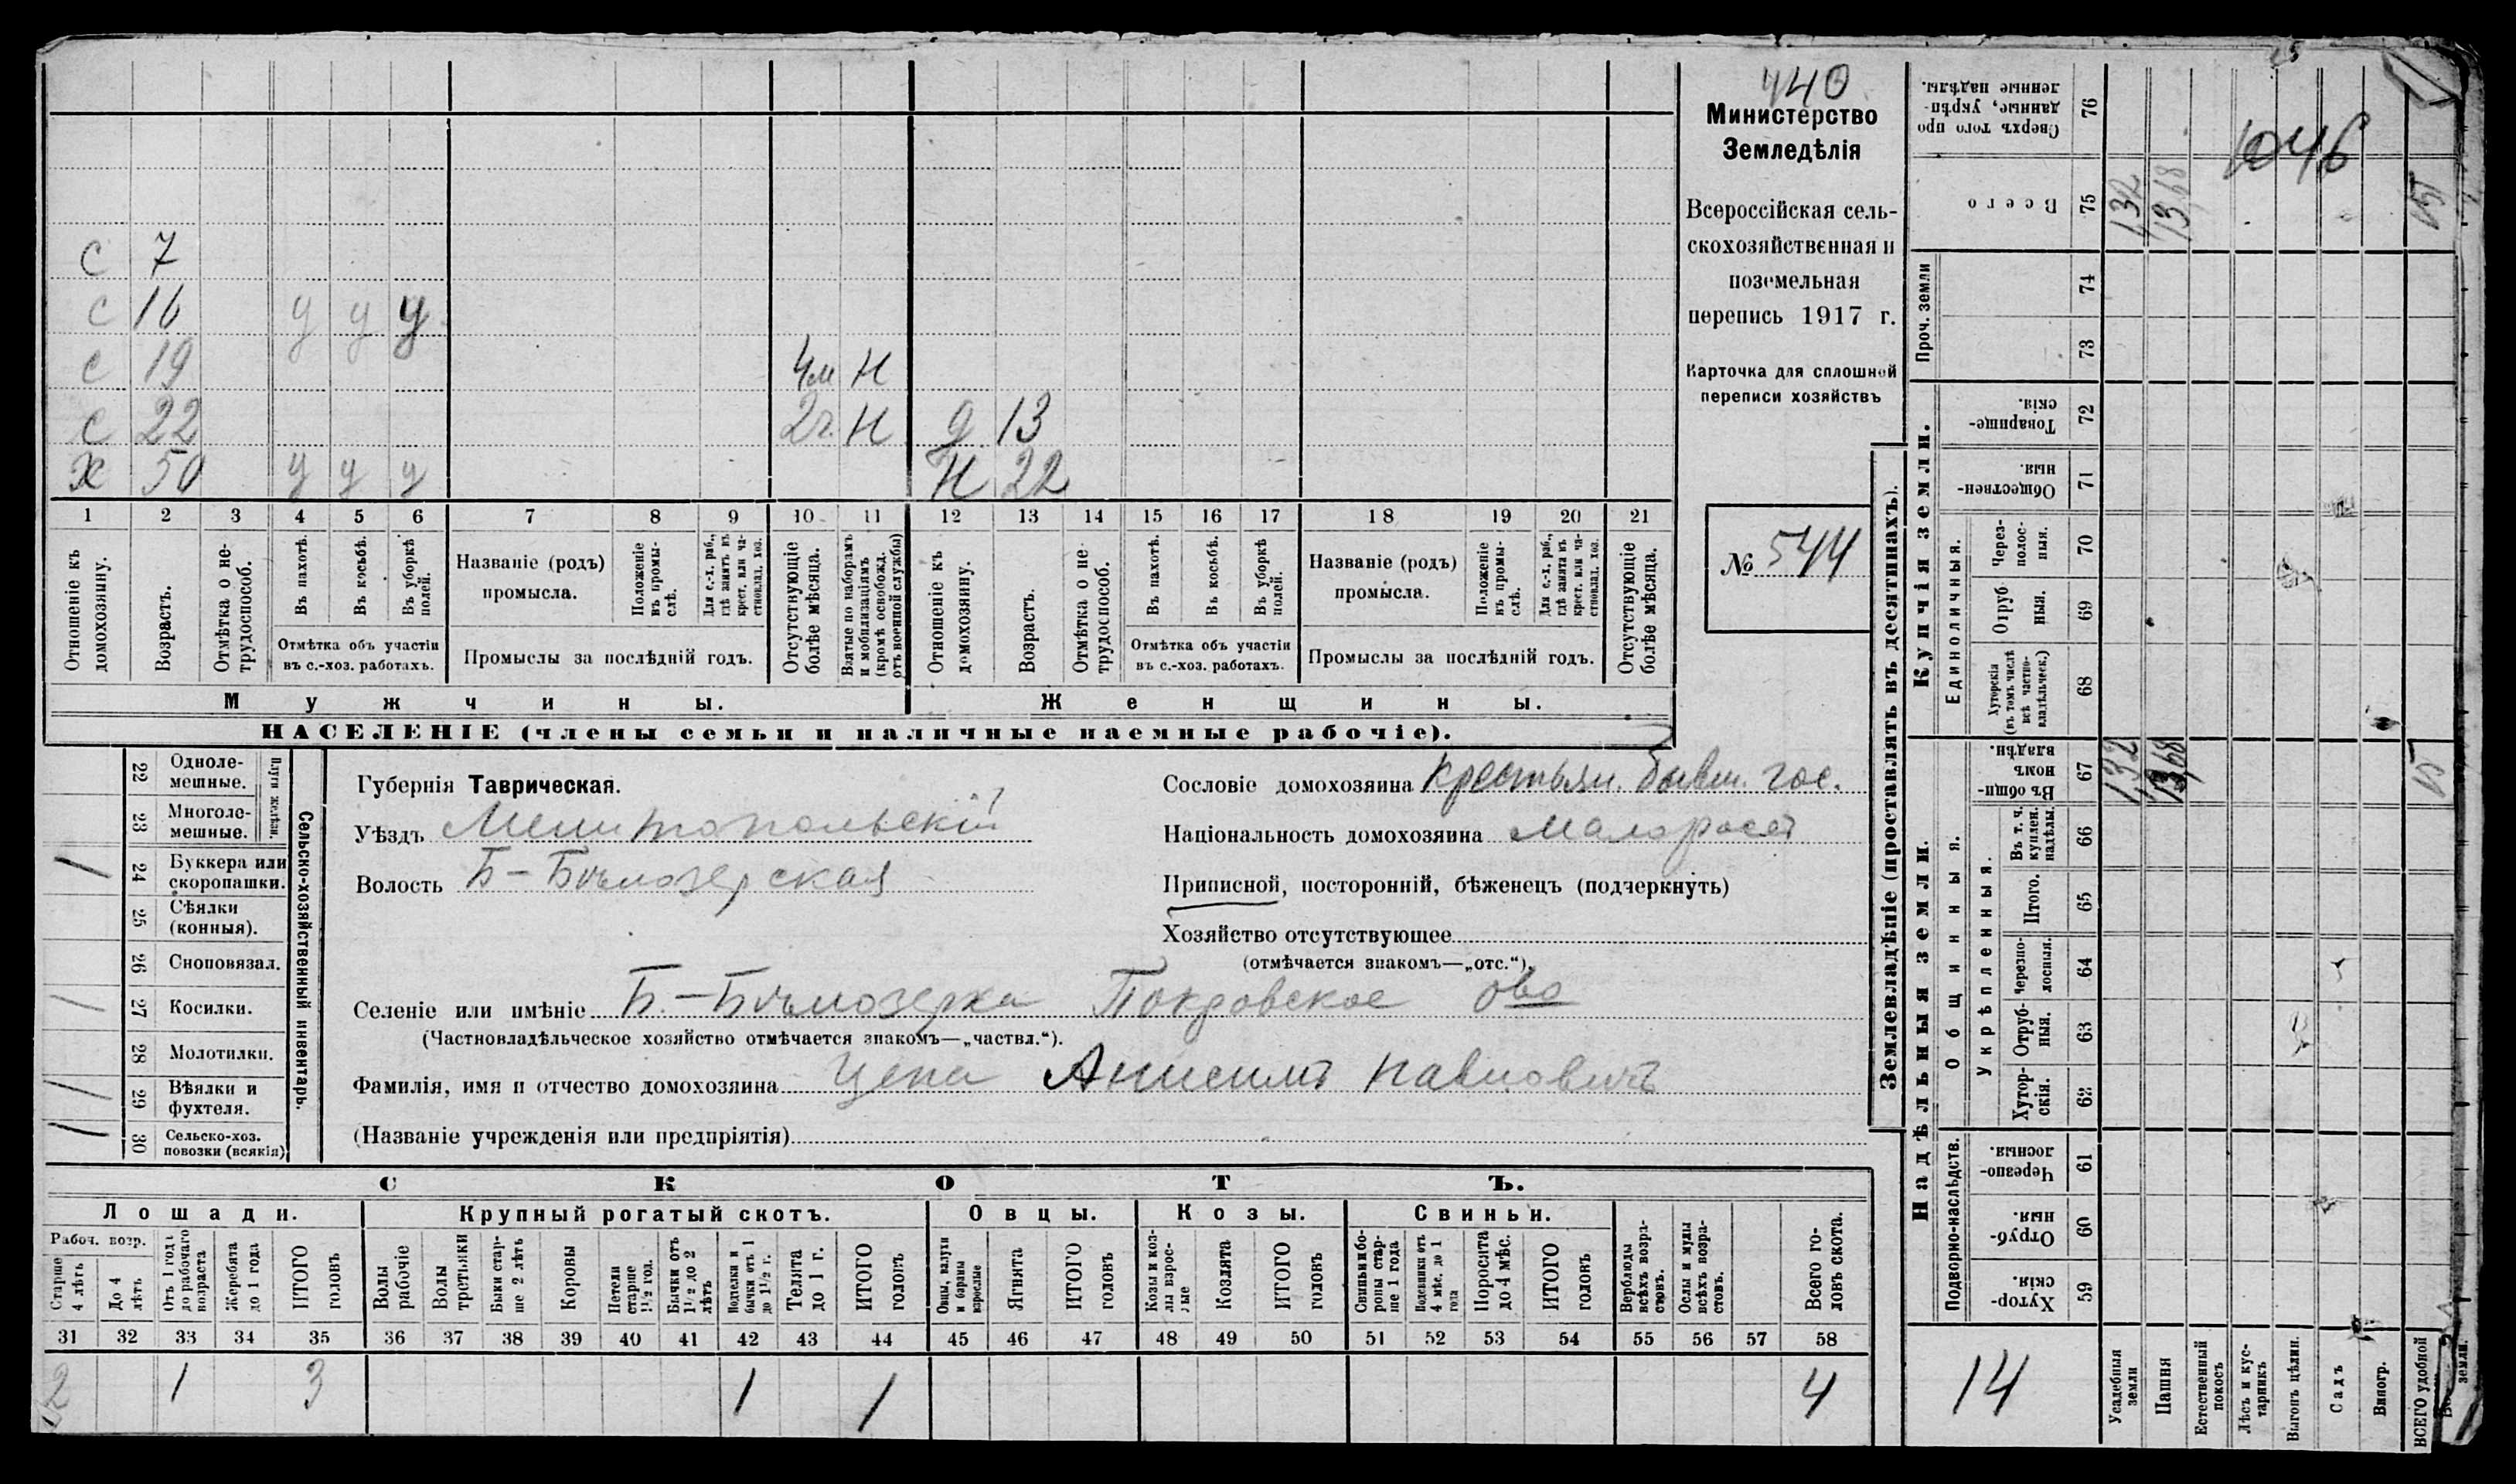 440
Министерство
Земледѣлія
Всероссійская сель-
скохозяйственная и
поземельная
перепись 1917 г.
Карточка для сплошной
переписи хозяйствъ
№ 544
с 7
с 16 у у у
с 19 4м Н
с 22 2г. Н д 13
х 50 у у у Н 22
1 2 3 4 5 6 7 8 9 10 11 12 13 14 15 16 17 18 19 20 21
Отношеніе къ домохозяину.
Возрастъ.
Отмѣтка о не-трудоспособ.
Въ пахотѣ.
Въ косьбѣ.
Въ уборкѣ полей.
Отмѣтка объ участіи
въ с.-хоз. работахъ.
Названіе (родъ)
промысла.
Положеніе въ промы-слѣ.
Для с.-х. раб., гдѣ занятъ въ крест. или ча-стновлад. хоз.
Промыслы за послѣдній годъ.
Отсутствующіе болѣе мѣсяца.
Взятые по наборамъ и мобилизаціямъ (кромѣ освобожд. отъ военной службы)
Отношеніе къ домохозяину.
Возрастъ.
Отмѣтка о не трудоспособ.
Въ пахотѣ.
Въ косьбѣ.
Въ уборкѣ полей.
Отмѣтка объ участіи
въ с.-хоз. работахъ.
Названіе (родъ)
промысла.
Положеніе въ промы-слѣ.
Для с.-х. раб., гдѣ заняти въ крест. или ча-стновлад. хоз.
Промыслы за послѣдній годъ.
Отсутствующіе болѣе мѣсяца.
Мужчины.
Женщины.
НАСЕЛЕНІЕ (члены семьи и наличные наемные рабочіе).
22 Одноле-мешные.
23 Многоле-мешные.
Плуги желѣзн.
1 24 Буккера или скоропашки.
25 Сѣялки (конныя).
26 Сноповязал.
1 27 Косилки.
28 Молотилки.
1 29 Вѣялки и фухтеля.
1 30 Сельско-хоз. повозки (всякія)
Сельско-хозяйственный инвентарь.
Губернія Таврическая.
Уѣздъ Мелитопольскій
Волость Б-Бѣлозерская
Сословіе домохозяина крестьян. бывш. гос.
Національность домохозяина малороссъ
Приписной, посторонній, бѣженецъ (подчеркнуть)
Хозяйство отсутствующее
(отмѣчается знакомъ—„отс.“).
Селеніе или имѣніе Б.-Бѣлозерка Покровское ово
(Частновладѣльческое хозяйство отмѣчается знакомъ—„частвл.“).
Фамилія, имя и отчество домохозяина Цепа Анисимъ Павловичъ
(Названіе учрежденія или предпріятія)
СКОТЪ.
Лошади.
Крупный рогатый скотъ.
Овцы.
Козы.
Свиньи.
Рабоч. возр.
Старше 4 лѣтъ
До 4 лѣтъ
Отъ 1 года до рабочаго возраста
Жеребята до 1 года
ИТОГО головъ
Волы рабочіе
Волы третьяки
Быки стар-ше 2 лѣтъ
Коровы
Нетели старше 1½ год.
Бычки отъ 1½ до 2 лѣтъ
Подтелки и бычки отъ 1 до 1½ г.
Телята до 1 г.
ИТОГО головъ
Овцы, валухи и бараны взрослые
Ягнята
ИТОГО головъ
Козы и коз-лы взрос-лые
Козлята
ИТОГО головъ
Свиньи и бо-ровы стар-ше 1 года
Подсвинки отъ 4 мѣс. до 1 года
Поросята до 4 мѣс.
ИТОГО головъ
Верблюды всѣхъ возра-стовъ.
Ослы и мулы всѣхъ возра-стовъ.
Всего го-ловъ скота.
31 32 33 34 35 36 37 38 39 40 41 42 43 44 45 46 47 48 49 50 51 52 53 54 55 56 57 58
2 1 3 1 1 4
Землевладѣніе (проставлять въ десятинахъ).
Купчія земли.
Надѣльныя земли.
Сверхъ того про данные, укрѣп-ленные надѣлы. 76
Всего 75 1,32 13,68 15
1046
Проч. земли 74
73
Товарище-скія. 72
Обществен-ныя. 71
Единоличныя.
Через-полос-ныя. 70
Отруб ныя. 69
Хуторскія (въ томъ числѣ всѣ частно-владѣльческ.) 68
Въ общи-номъ владѣн. 67 1,32 13,68 15
Общинныя.
Укрѣпленныя.
Въ т. ч. куплен. надѣлы. 66
Итого. 65
Черезпо-лосныя. 64
Отруб-ныя. 63
Хутор-скія. 62
Подворно-наслѣдств.
Черезпо-лосныя. 61
Отруб-ныя. 60
Хутор-скія. 59
14
Усадебныя земли
Пашня
Естественный покосъ
Лѣсъ и кус-тарникъ
Выгонъ цѣлин.
Садъ
Виногр.
ВСЕГО удобной
земли.